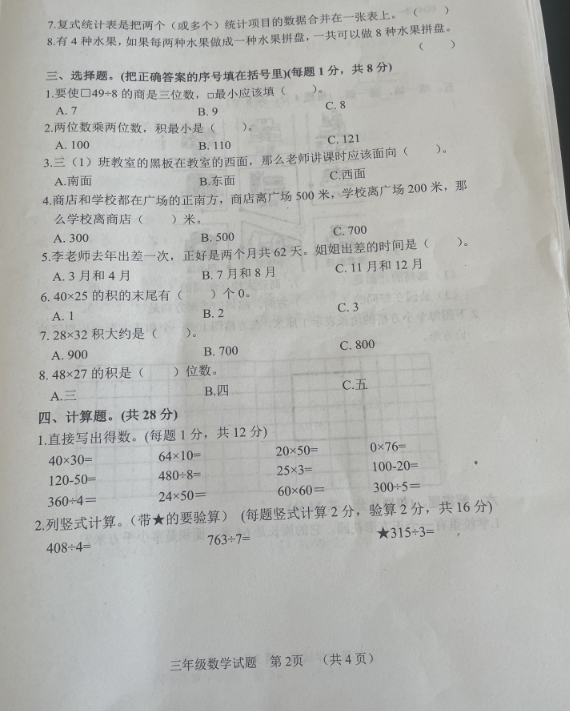 7.复式统计表是把两个（或多个）统计项目的数据合并在一张表上。（　　）
8.有 4 种水果，如果每两种水果做成一种水果拼盘，一共可以做 8 种水果拼盘。
（　　）
三、选择题。(把正确答案的序号填在括号里)(每题 1 分，共 8 分)
1.要使□49÷8 的商是三位数，□最小应该填（　　）。
A. 7　　B. 9　　C. 8
2.两位数乘两位数，积最小是（　　）。
A. 100　　B. 110　　C. 121
3.三（1）班教室的黑板在教室的西面，那么老师讲课时应该面向（　　）。
A.南面　　B.东面　　C.西面
4.商店和学校都在广场的正南方，商店离广场 500 米，学校离广场 200 米，那
么学校离商店（　　）米。
A. 300　　B. 500　　C. 700
5.李老师去年出差一次，正好是两个月共 62 天。姐姐出差的时间是（　　）。
A. 3 月和 4 月　　B. 7 月和 8 月　　C. 11 月和 12 月
6. 40×25 的积的末尾有（　　）个 0。
A. 1　　B. 2　　C. 3
7. 28×32 积大约是（　　）。
A. 900　　B. 700　　C. 800
8. 48×27 的积是（　　）位数。
A.三　　B.四　　C.五
四、计算题。(共 28 分)
1.直接写出得数。(每题 1 分，共 12 分)
40×30=　　64×10=　　20×50=　　0×76=
120-50=　　480÷8=　　25×3=　　100-20=
360÷4＝　　24×50＝　　60×60＝　　300÷5＝
2.列竖式计算。（带★的要验算）（每题竖式计算 2 分，验算 2 分，共 16 分)
408÷4=　　763÷7=　　★315÷3=
三年级数学试题　第 2页　（共 4 页）